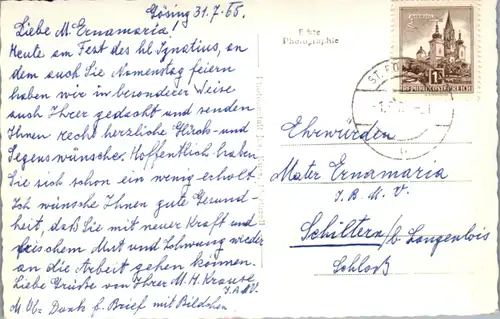 Gösing 31.7.68.
Liebe M. Ernamaria!
Heute am Fest des hl. Ignatius, an
dem auch Sie Namenstag feiern
haben wir in besonderer Weise
auch Ihrer gedacht und senden
Ihnen recht herzliche Glück- und
Segenswünsche. Hoffentlich haben
Sie sich schon ein wenig erholt.
Ich wünsche Ihnen gute Gesund-
heit, daß Sie mit neuer Kraft und
frischem Mut und Schwung wieder
an die Arbeit gehen können.
Liebe Grüße von Ihrer M. H. Krause
I.B.M.V.
Dank f. Brief mit Bildchen.
Echte
Photographie
1S
REPUBLIK ÖSTERREICH
ST. PÖ
Ehrwürden
Mater Ernamaria
I. B. M. V.
Schiltern b/ Langenlois
Schloß